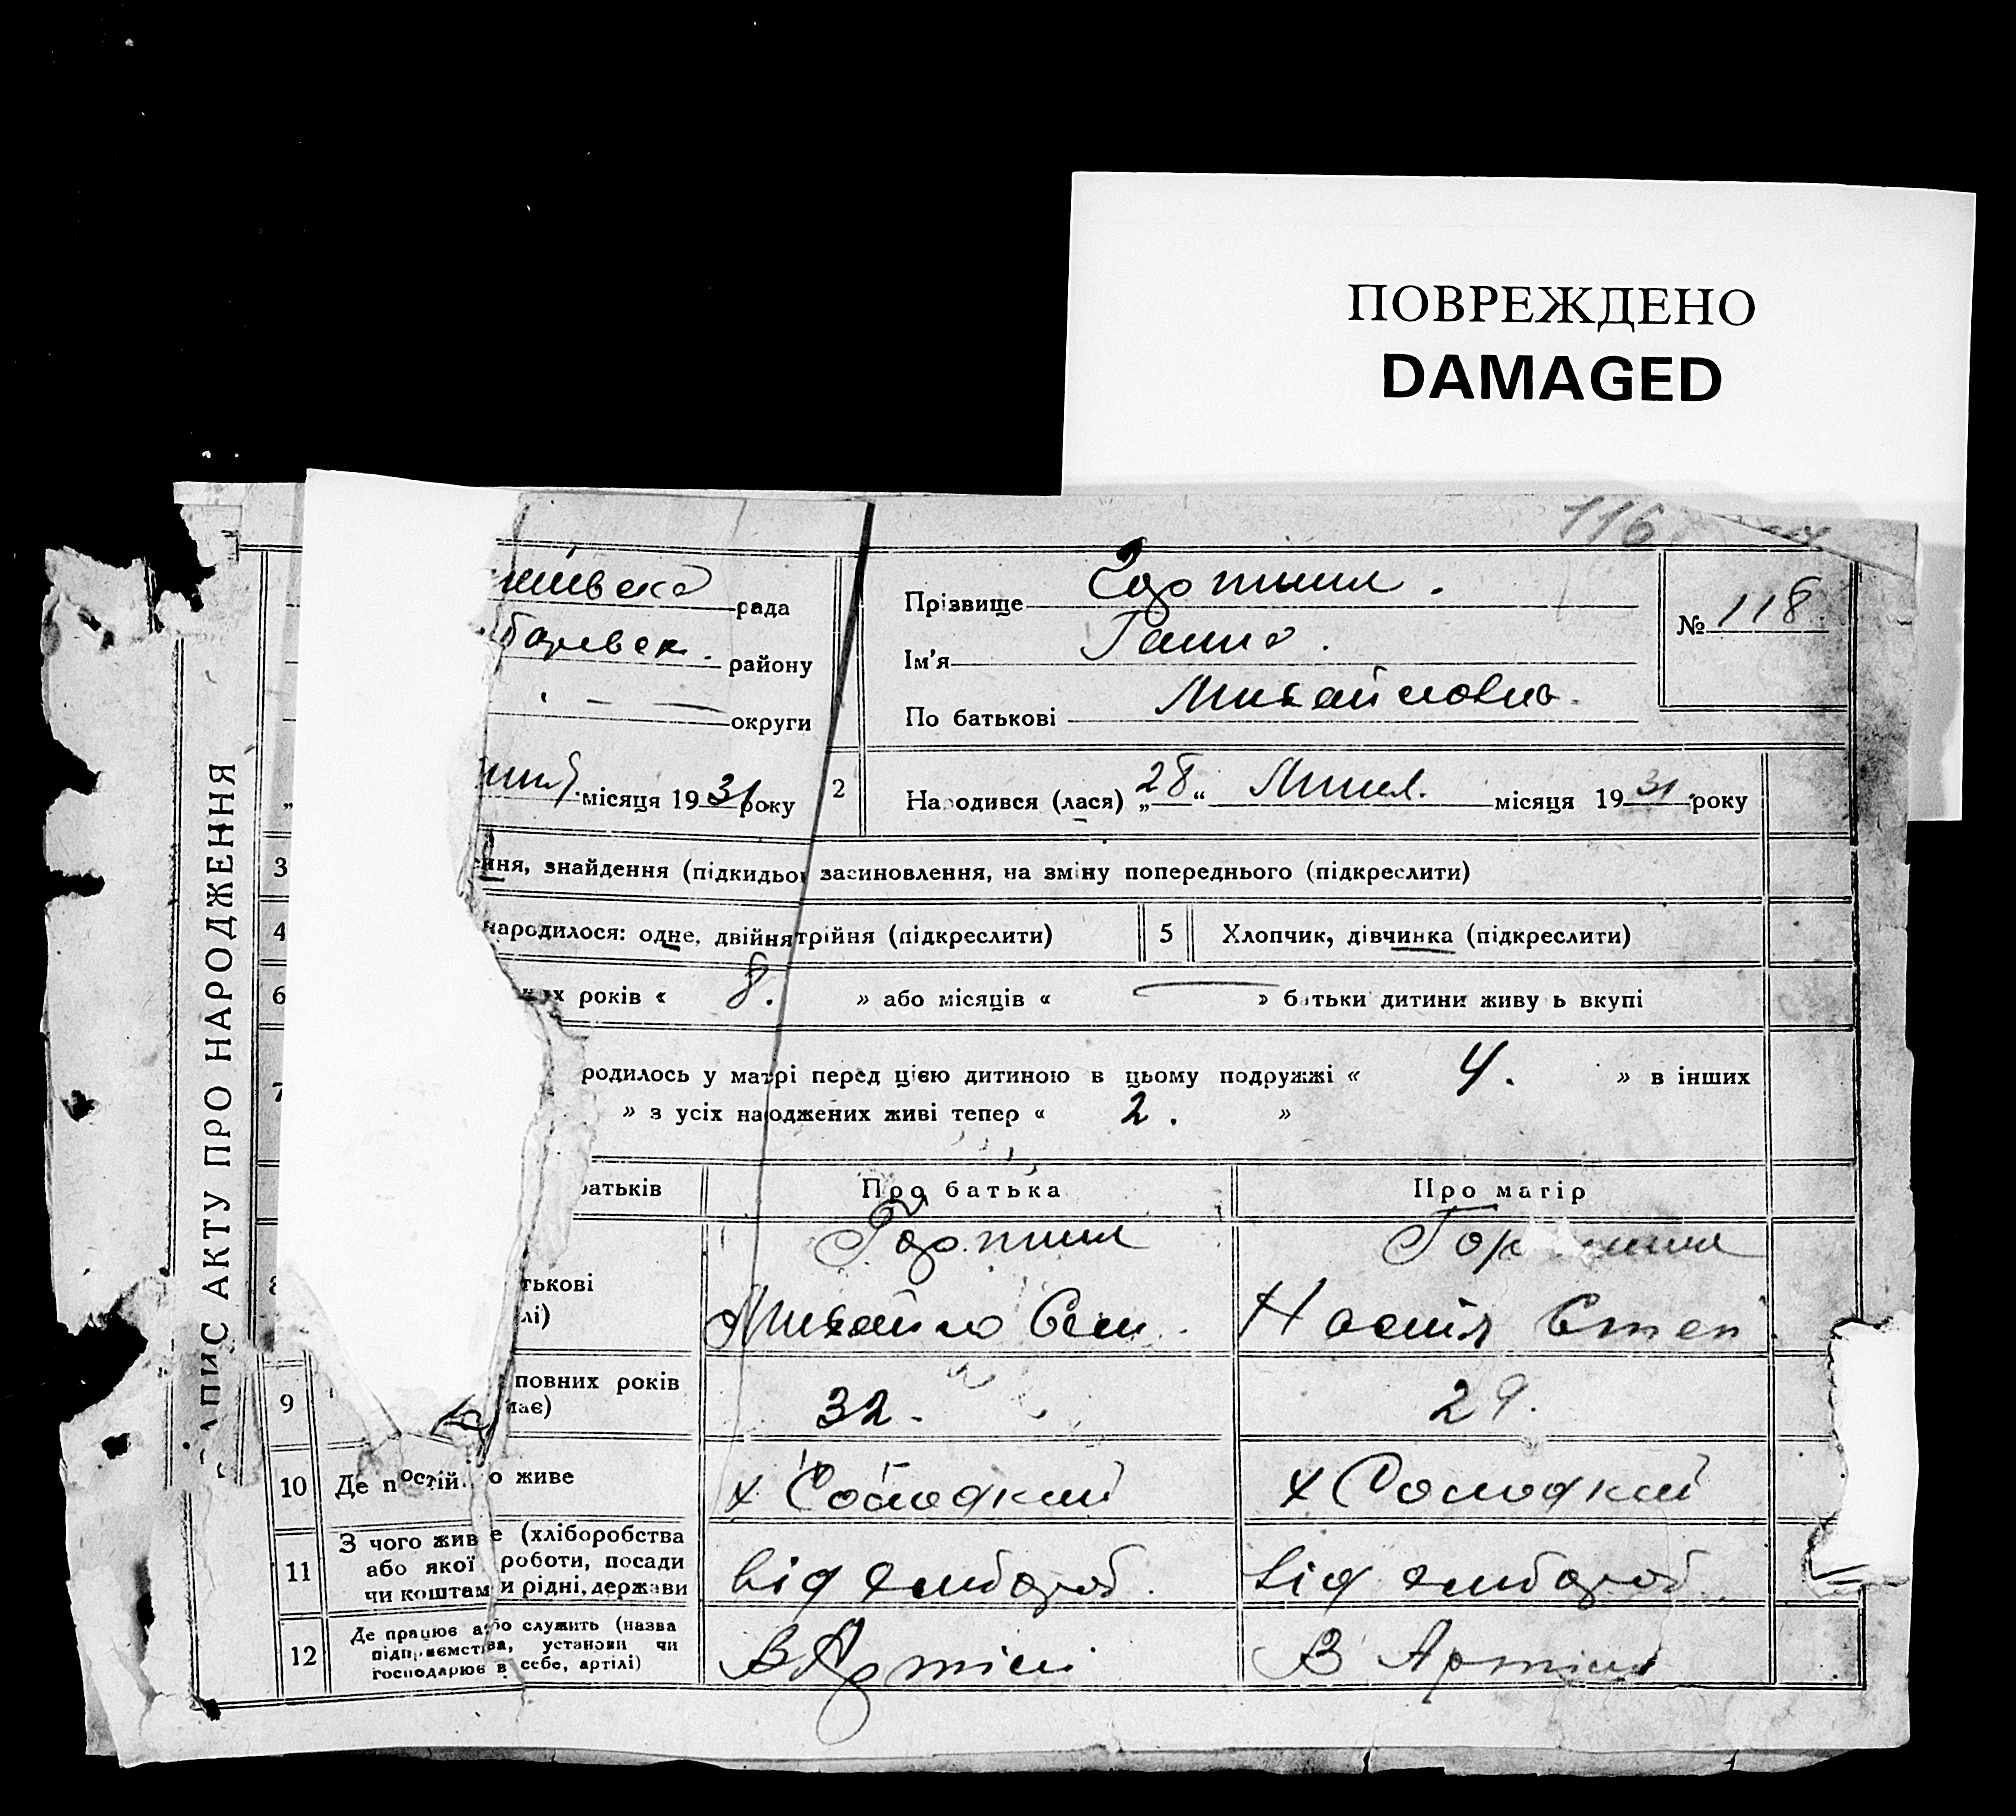 ПОВРЕЖДЕНО
DAMAGED
116
ЗАПИС АКТУ ПРО НАРОДЖЕННЯ
рада
району
округи
місяця 1931 року
Прізвище
Ім'я Ганна
По батькові Михайловна
№ 118
2 Народився (лася) „28“ Липня місяця 1931 року
3 ння, знайдення (підкидьо засиновлення, на зміну попереднього (підкреслити)
4 народилося: одне, двійня трійня (підкреслити) 5 Хлопчик, дівчинка (підкреслити)
6 років « 8. » або місяців « — » батьки дитини живу ь вкупі
7 родилось у матрі перед цією дитиною в цьому подружжі « 4. » в інших
» з усіх народжених живі тепер « 2. »
батьків Про батька Про матір
8 тькові
лі)
Михайло Сем. Настя Степ.
9 повних років
має) 32. 29.
10 Де постій о живе х Солодкий х Солодкий
11 З чого живе (хліборобства
або якої роботи, посади
чи коштами рідні, держави від хлібороб. від хлібороб.
12 Де працює або служить (назва
підприємства, установи чи
господарює в себе, артілі) В Артілі В Артілі